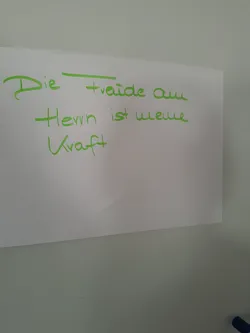 Die Freude am
Herrn ist meine
Kraft